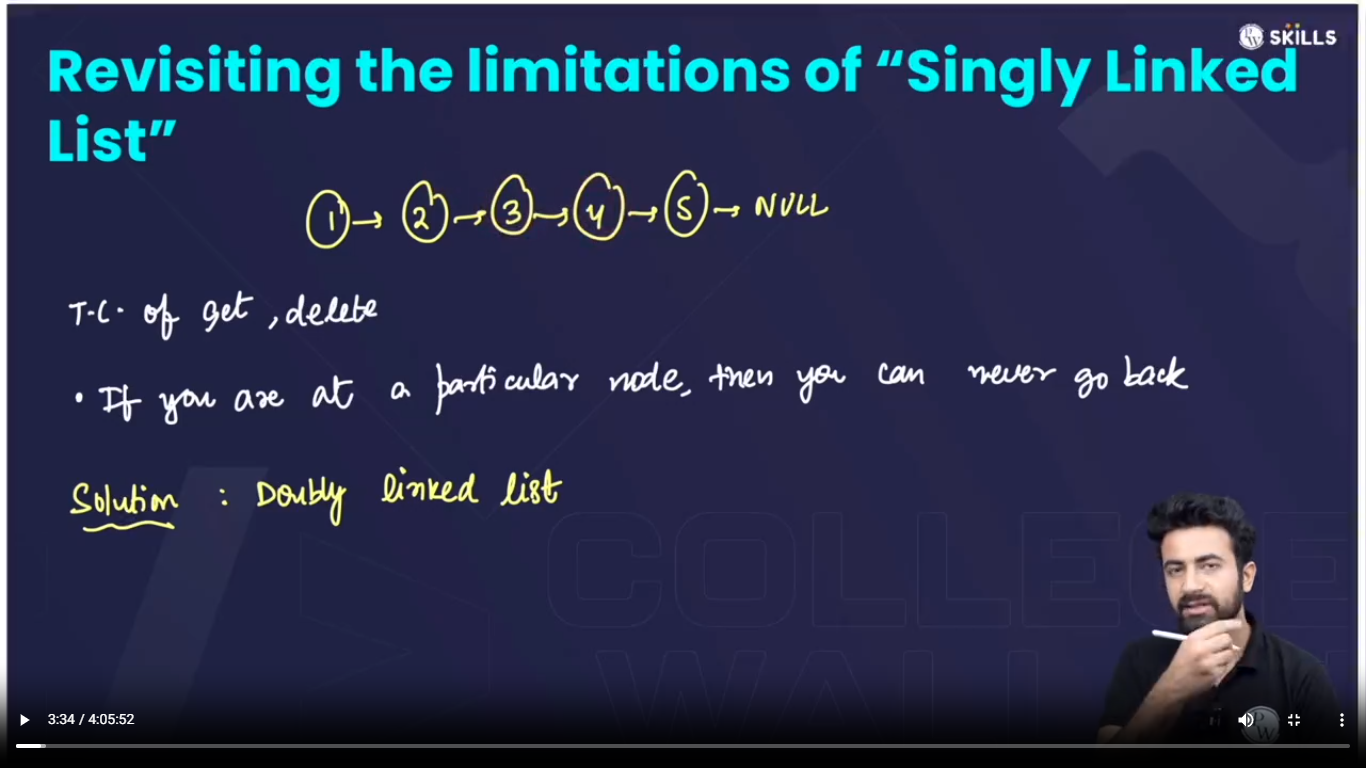 SKILLS
Revisiting the limitations of “Singly Linked
List”
1 → 2 → 3 → 4 → 5 → NULL
T.C. of get, delete
• If you are at a particular node, then you can never go back
Solution : Doubly linked list
COLLEGE
WALL
3:34 / 4:05:52